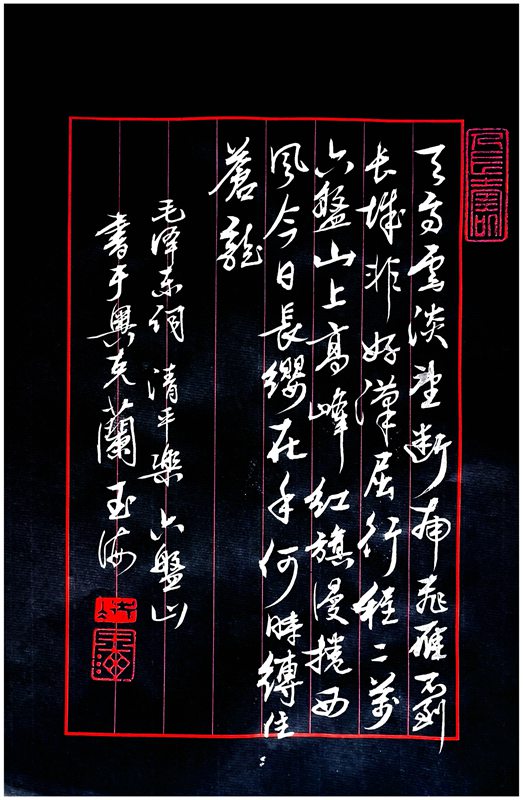 天高雲淡望断南飛雁不到
长城非好漢屈行程二萬
六盤山上高峰红旗漫捲西
風今日長纓在手何時縛住
蒼龍
毛泽东词 清平樂 六盤山
書于奥克蘭 玉海